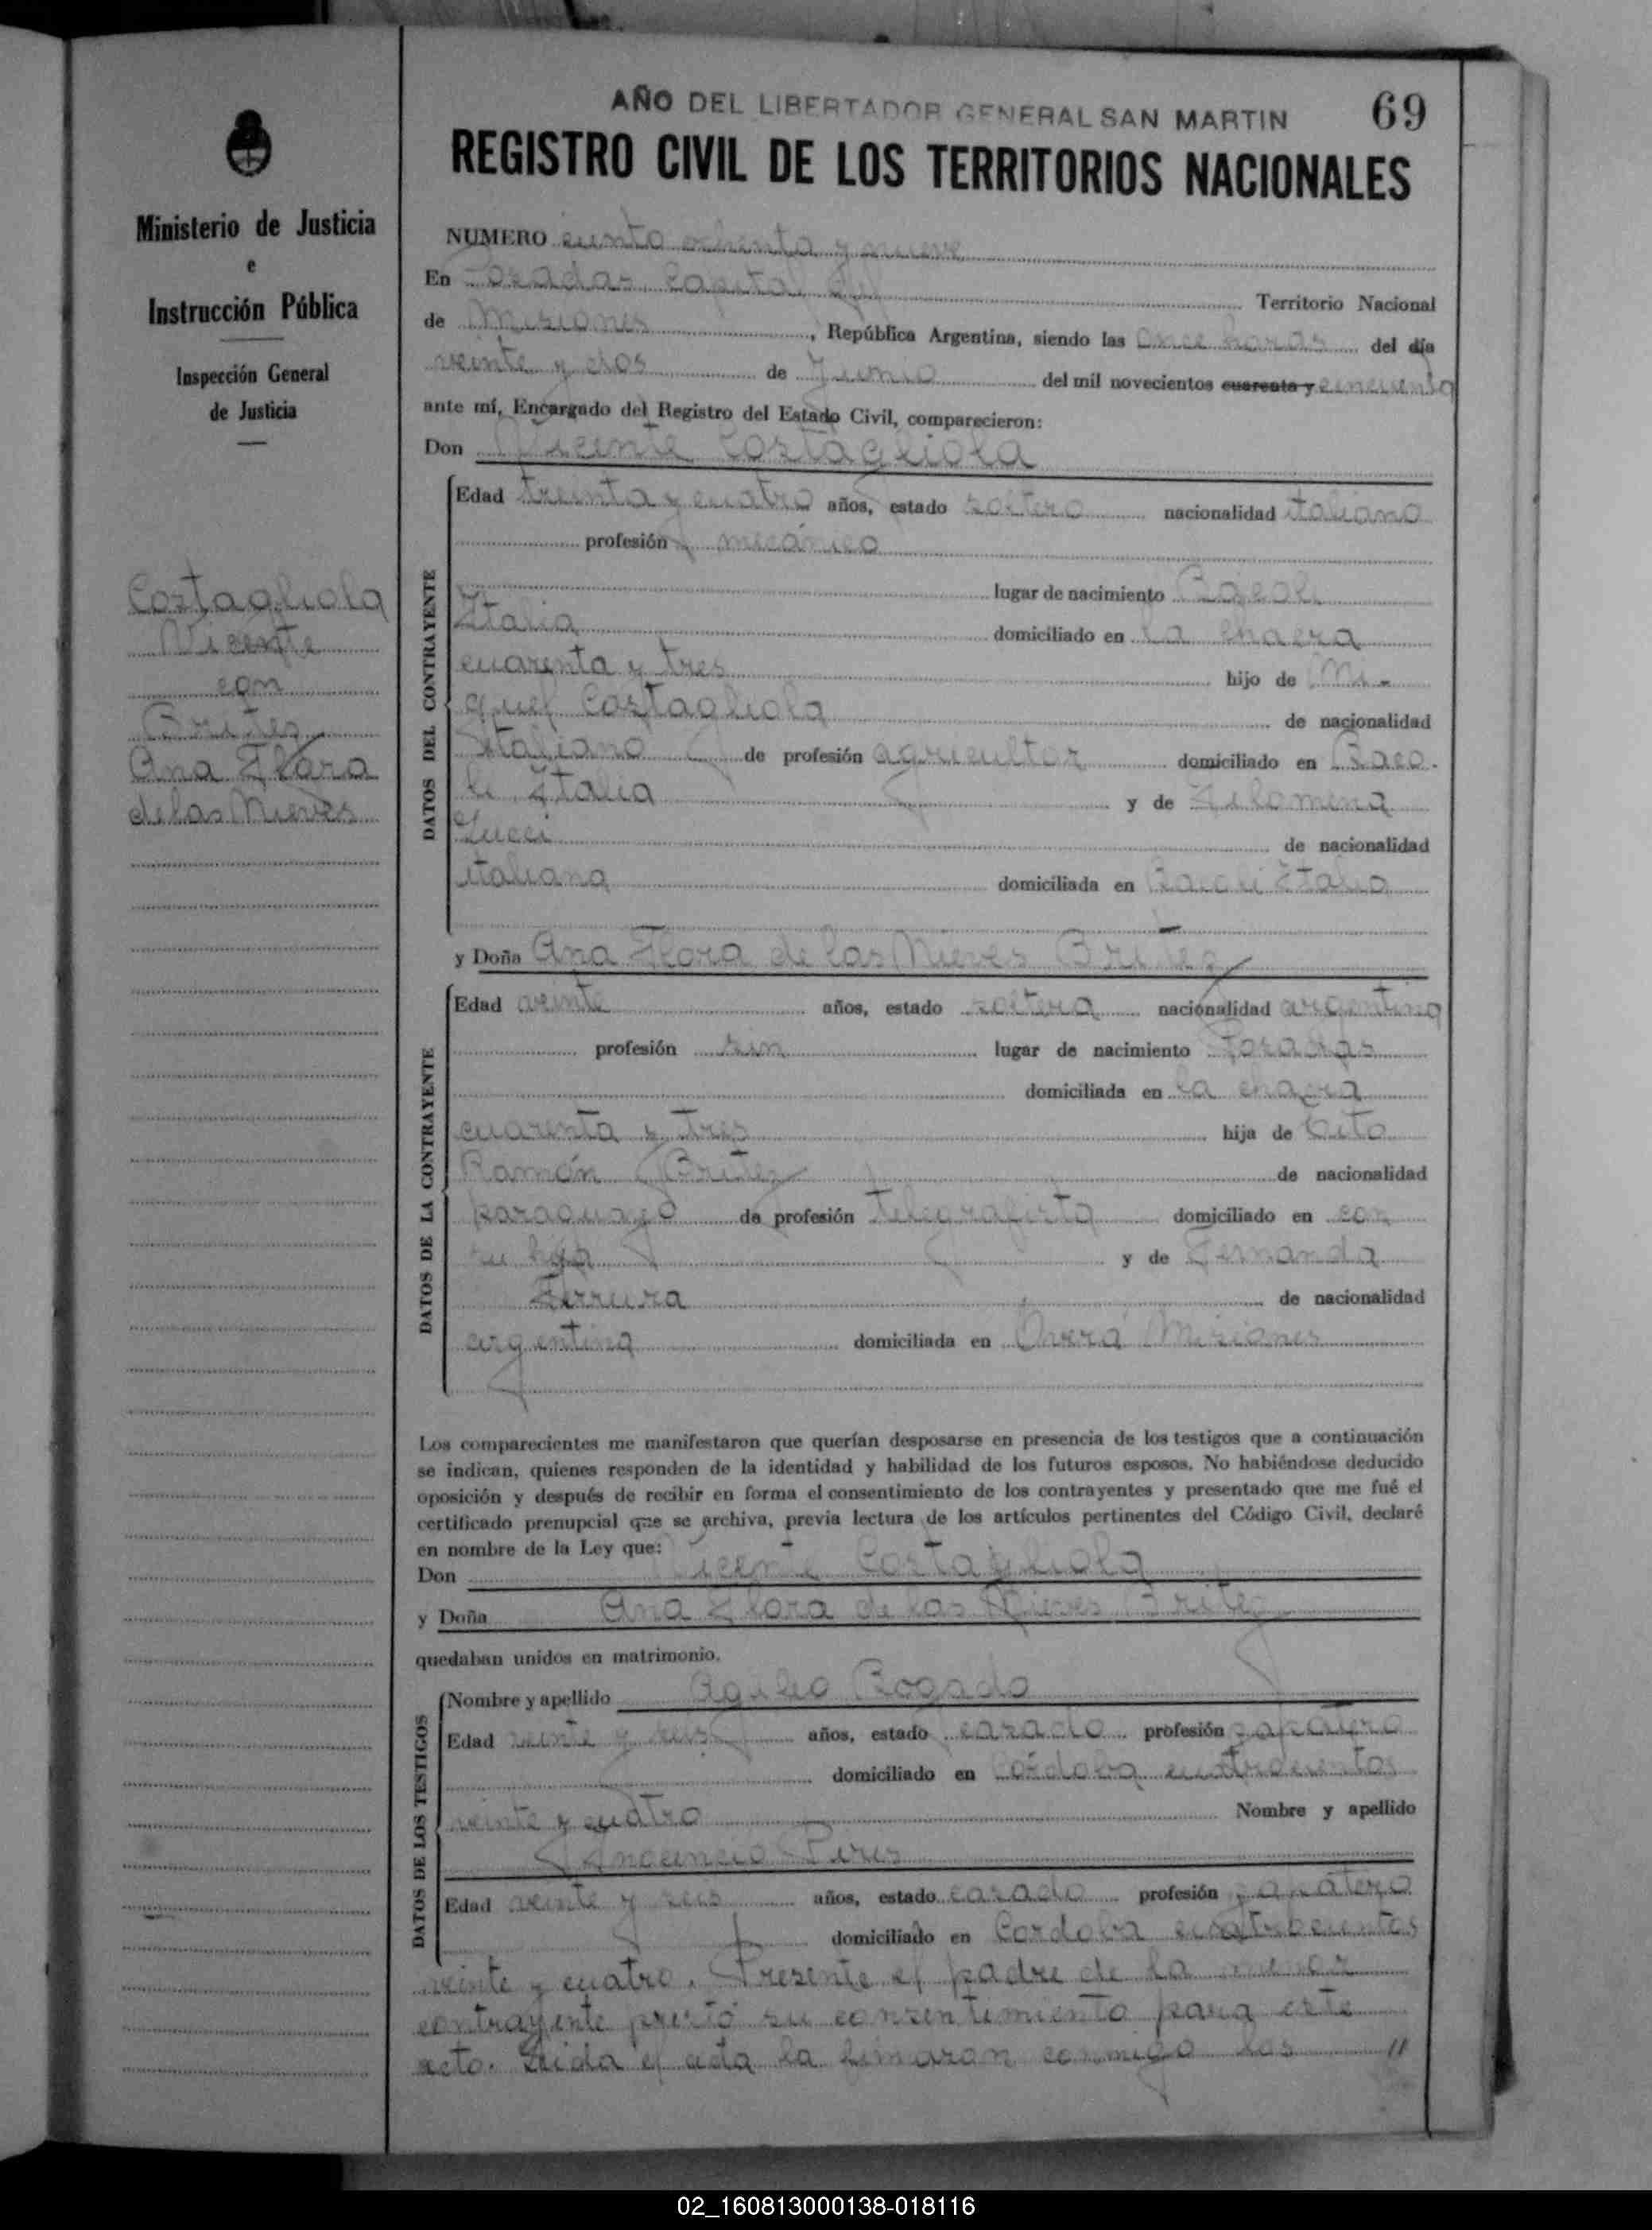 AÑO DEL LIBERTADOR GENERAL SAN MARTIN
69
REGISTRO CIVIL DE LOS TERRITORIOS NACIONALES
Ministerio de Justicia
e
Instrucción Pública
Inspección General
de Justicia
Costagliola
Vicente
con
Britez
Ana Flora
de las Nieves
NUMERO ciento ochenta y nueve
En Posadas, capital del Territorio Nacional
de Misiones, República Argentina, siendo las once horas del día
veinte y dos de Junio del mil novecientos cuarenta y cincuenta
ante mí, Encargado del Registro del Estado Civil, comparecieron:
Don Vicente Costagliola
DATOS DEL CONTRAYENTE
Edad treinta y cuatro años, estado soltero nacionalidad italiano
profesión mecánico
lugar de nacimiento Bácoli
Italia domiciliado en la chacra
cuarenta y tres hijo de Mi-
guel Costagliola de nacionalidad
italiano de profesión agricultor domiciliado en Baco-
li Italia y de Filomena
Lucci de nacionalidad
italiana domiciliada en Bacoli Italia
y Doña Ana Flora de las Nieves Britez
DATOS DE LA CONTRAYENTE
Edad veinte años, estado soltera nacionalidad argentina
profesión sin lugar de nacimiento Posadas
domiciliada en la chacra
cuarenta y tres hija de Tito
Ramón Britez de nacionalidad
paraguayo de profesión telegrafista domiciliado en con
su hija y de Fernanda
Ferrura de nacionalidad
argentina domiciliada en Oberá Misiones
Los comparecientes me manifestaron que querían desposarse en presencia de los testigos que a continuación
se indican, quienes responden de la identidad y habilidad de los futuros esposos. No habiéndose deducido
oposición y después de recibir en forma el consentimiento de los contrayentes y presentado que me fué el
certificado prenupcial que se archiva, previa lectura de los artículos pertinentes del Código Civil, declaré
en nombre de la Ley que:
Don Vicente Costagliola
y Doña Ana Flora de las Nieves Britez
quedaban unidos en matrimonio.
DATOS DE LOS TESTIGOS
Nombre y apellido Agilio Bogado
Edad veinte y seis años, estado casado profesión zapatero
domiciliado en Córdoba cuatrocientos
veinte y cuatro Nombre y apellido
Inocencio Piris
Edad veinte y seis años, estado casado profesión zapatero
domiciliado en Cordoba cuatrocientos
veinte y cuatro. Presente el padre de la menor
contrayente prestó su consentimiento para este
acto. Leida el acta la firmaron conmigo los "
02_160813000138-018116